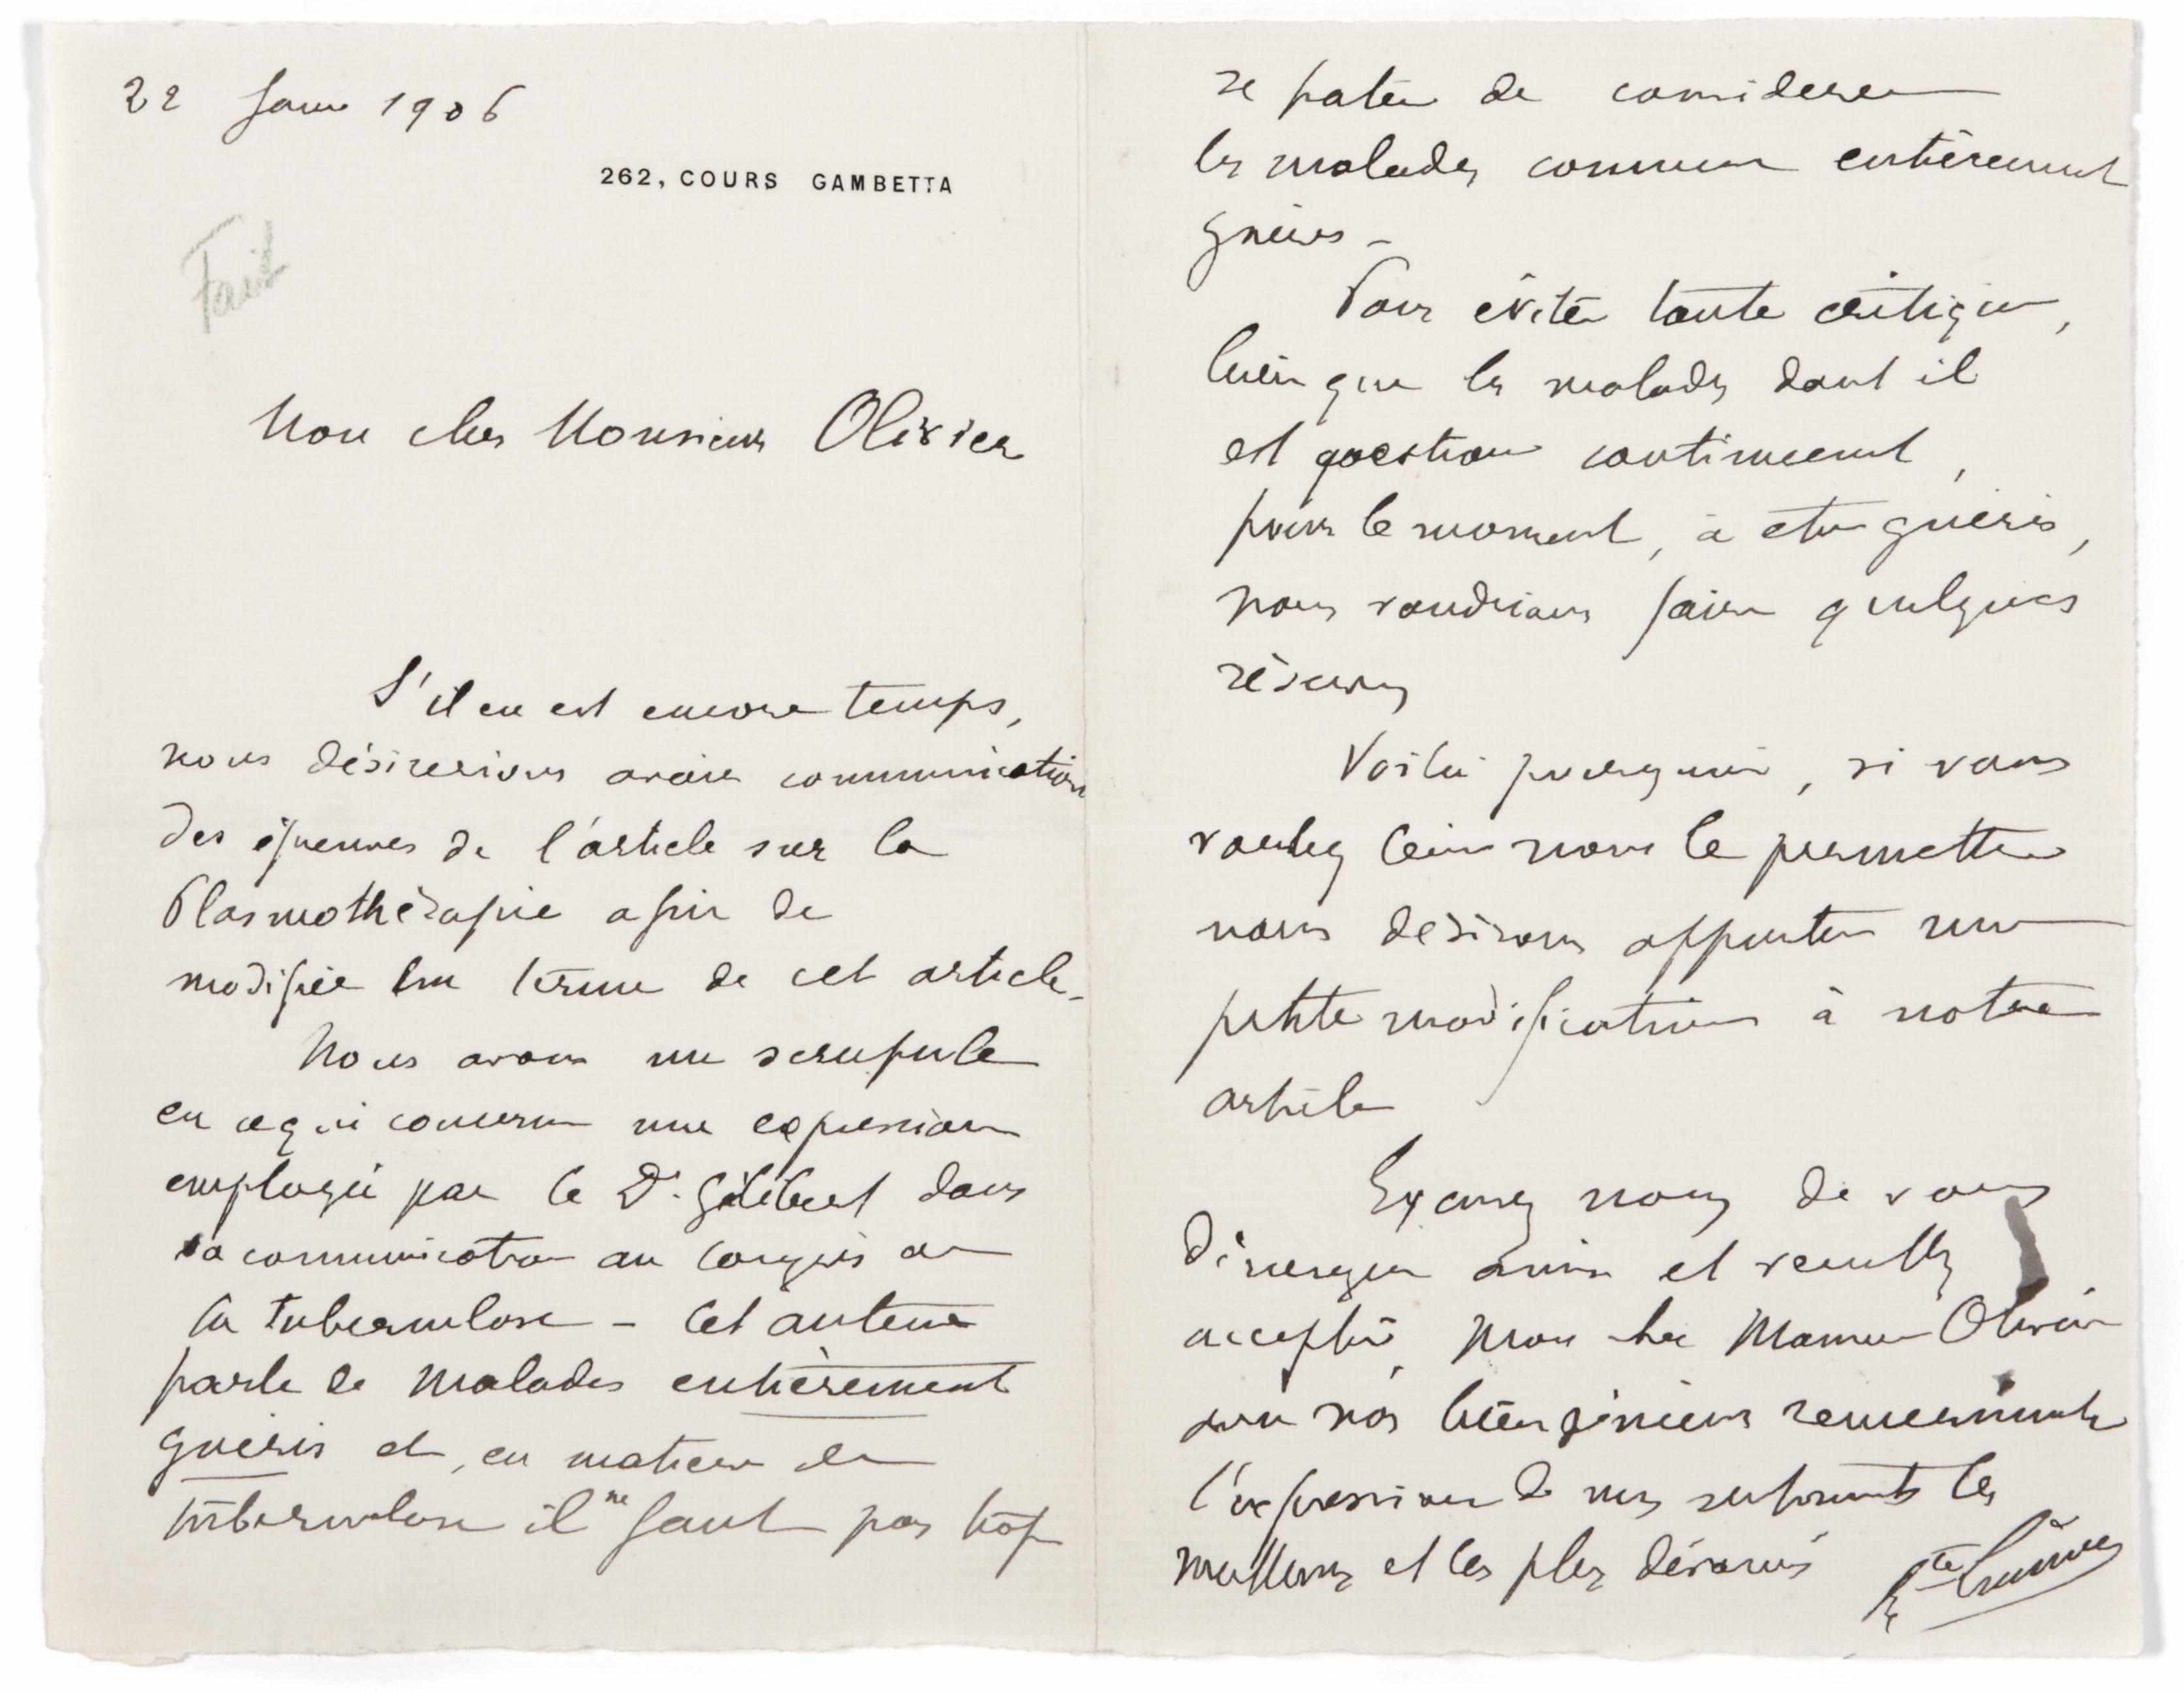 22 Janv 1906
262, COURS GAMBETTA
Fait
Mon cher Monsieur Olivier
S'il en est encore temps,
nous désirerions avoir communication
des épreuves de l'article sur la
Plasmothérapie afin de
modifier un terme de cet article.
Nous avons un scrupule
en ce qui concerne une expression
employée par le Dr. Gilibert dans
sa communication au Congrès de
la tuberculose – Cet auteur
parle de malades entièrement
guéris et, en matière de
tuberculose il ne faut pas trop
se hâter de considérer
les malades comme entièrement
guéris –
Pour éviter toute critique,
bien que les malades dont il
est question continuent,
pour le moment, à être guéris,
nous voudrions faire quelques
réserves
Voilà pourquoi, si vous
voulez bien nous le permettre
nous désirons apporter une
petite modification à notre
article
Excusez nous de vous
déranger ainsi et veuillez
accepter, mon cher Monsieur Olivier
avec nos bien sincères remerciements
l'expression de nos sentiments les
meilleurs et les plus dévoués